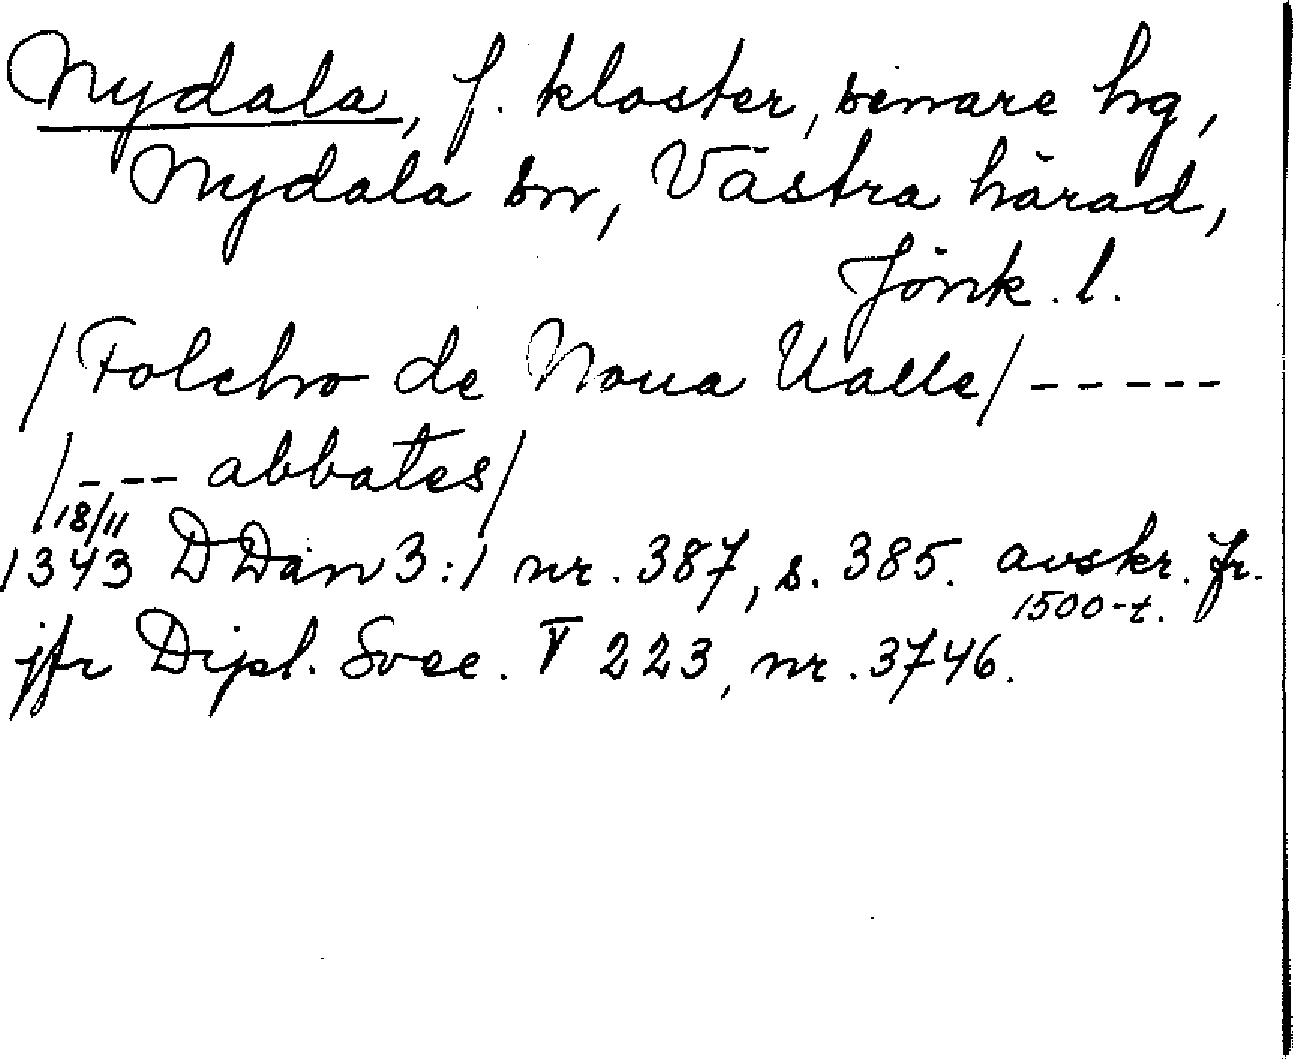 Nydala, f. kloster, senare hg,
Nydala sn, Västra härad,
Jönk. l.
/Folchro de Noua Ualle/ -----
/--- abbates/
18/11
1343 DDan 3:1 nr. 387, s. 385. avskr. fr.
1500-t.
jfr Dipl. Svec. V 223, nr. 3746.